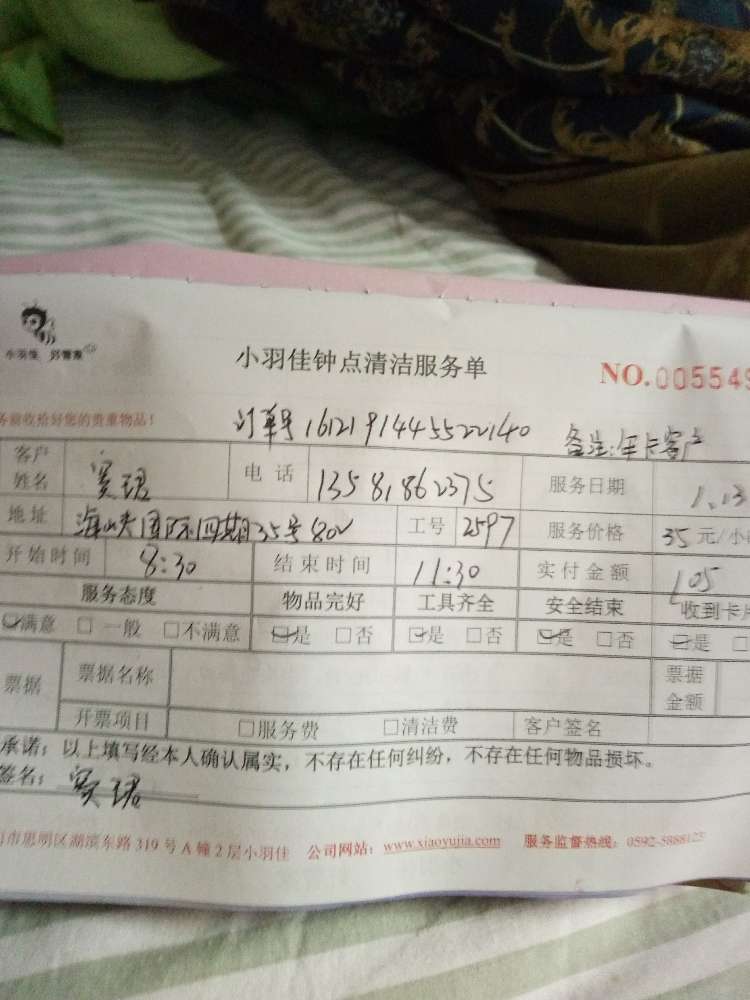 小羽佳 好管家
小羽佳钟点清洁服务单
NO.005549
务前收拾好您的贵重物品！
订单号161219144552214​0 备注:年卡客户
客户姓名 窦珺 电话 13581862375 服务日期 1.13
地址 海峡国际四期35号802 工号 2597 服务价格 35元/小
开始时间 8:30 结束时间 11:30 实付金额 105
服务态度 物品完好 工具齐全 安全结束 收到卡片
满意 □一般 □不满意 是 □否 是 □否 是 □否 是 □
票据 票据名称 票据金额
开票项目 □服务费 □清洁费 客户签名
承诺：以上填写经本人确认属实，不存在任何纠纷，不存在任何物品损坏。
签名：窦珺
市思明区湖滨东路319号A幢2层小羽佳 公司网站：www.xiaoyujia.com 服务监督热线：0592-5888123